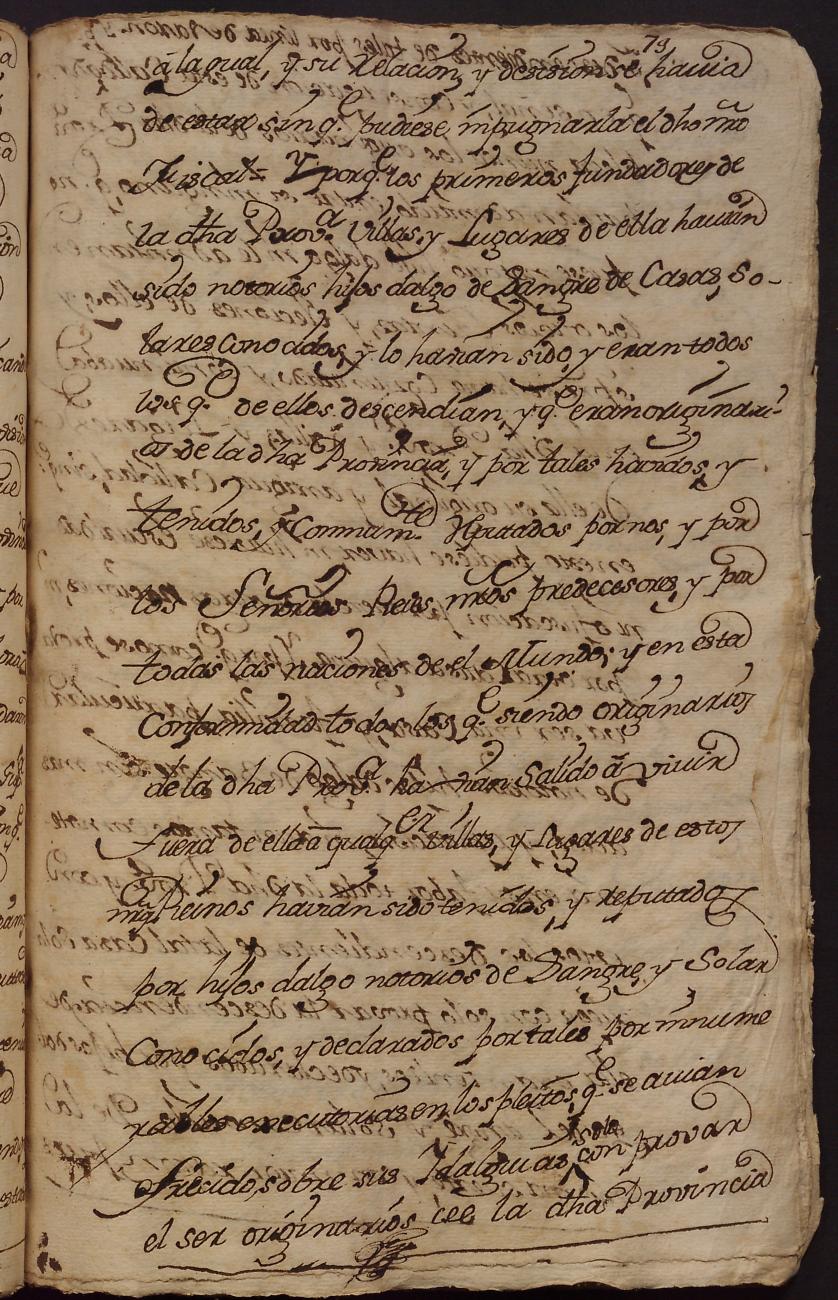 73
á la qual, y su relacion, y decision se havia
de estar sin q.e pudiese impugnarla el dho nro
Fiscal= Y porq.e los primeros fundadores de
la dha Prov.a Villas, y Lugares de ella havian
sido notorios hijos dalgo de Sangre de Casas, So-
lares conocidos, y lo havian sido, y eran todos
los q.e de ellos descendian, y q.e eran originari-
os de la dha Provincia, y por tales havidos, y
tenidos, y Comunm.te Reputados por nos, y por
los Señores Reies nros predecesores, y por
todas las naciones de el Mundo; y en esta
Conformidad todos los q.e siendo originarios
de la dha Prov.a havian salido á vivir
Fuera de ella á qualq.er villas, y Lugares de estos
nros Reinos havian sido tenidos, y reputados
por hijos dalgo notorios de Sangre, y Solar
Conocidos, y declarados por tales por innume
rables executorias en los pleitos, q.e se avian
Frecido, sobre sus Idalguias solo con provar
el ser originarios de la dha Provincia